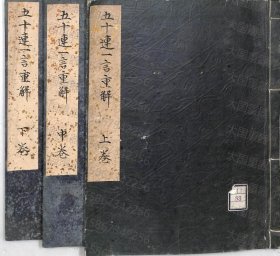 五十連一言重解 上巻
五十連一言重解 中巻
五十連一言重解 下巻
53